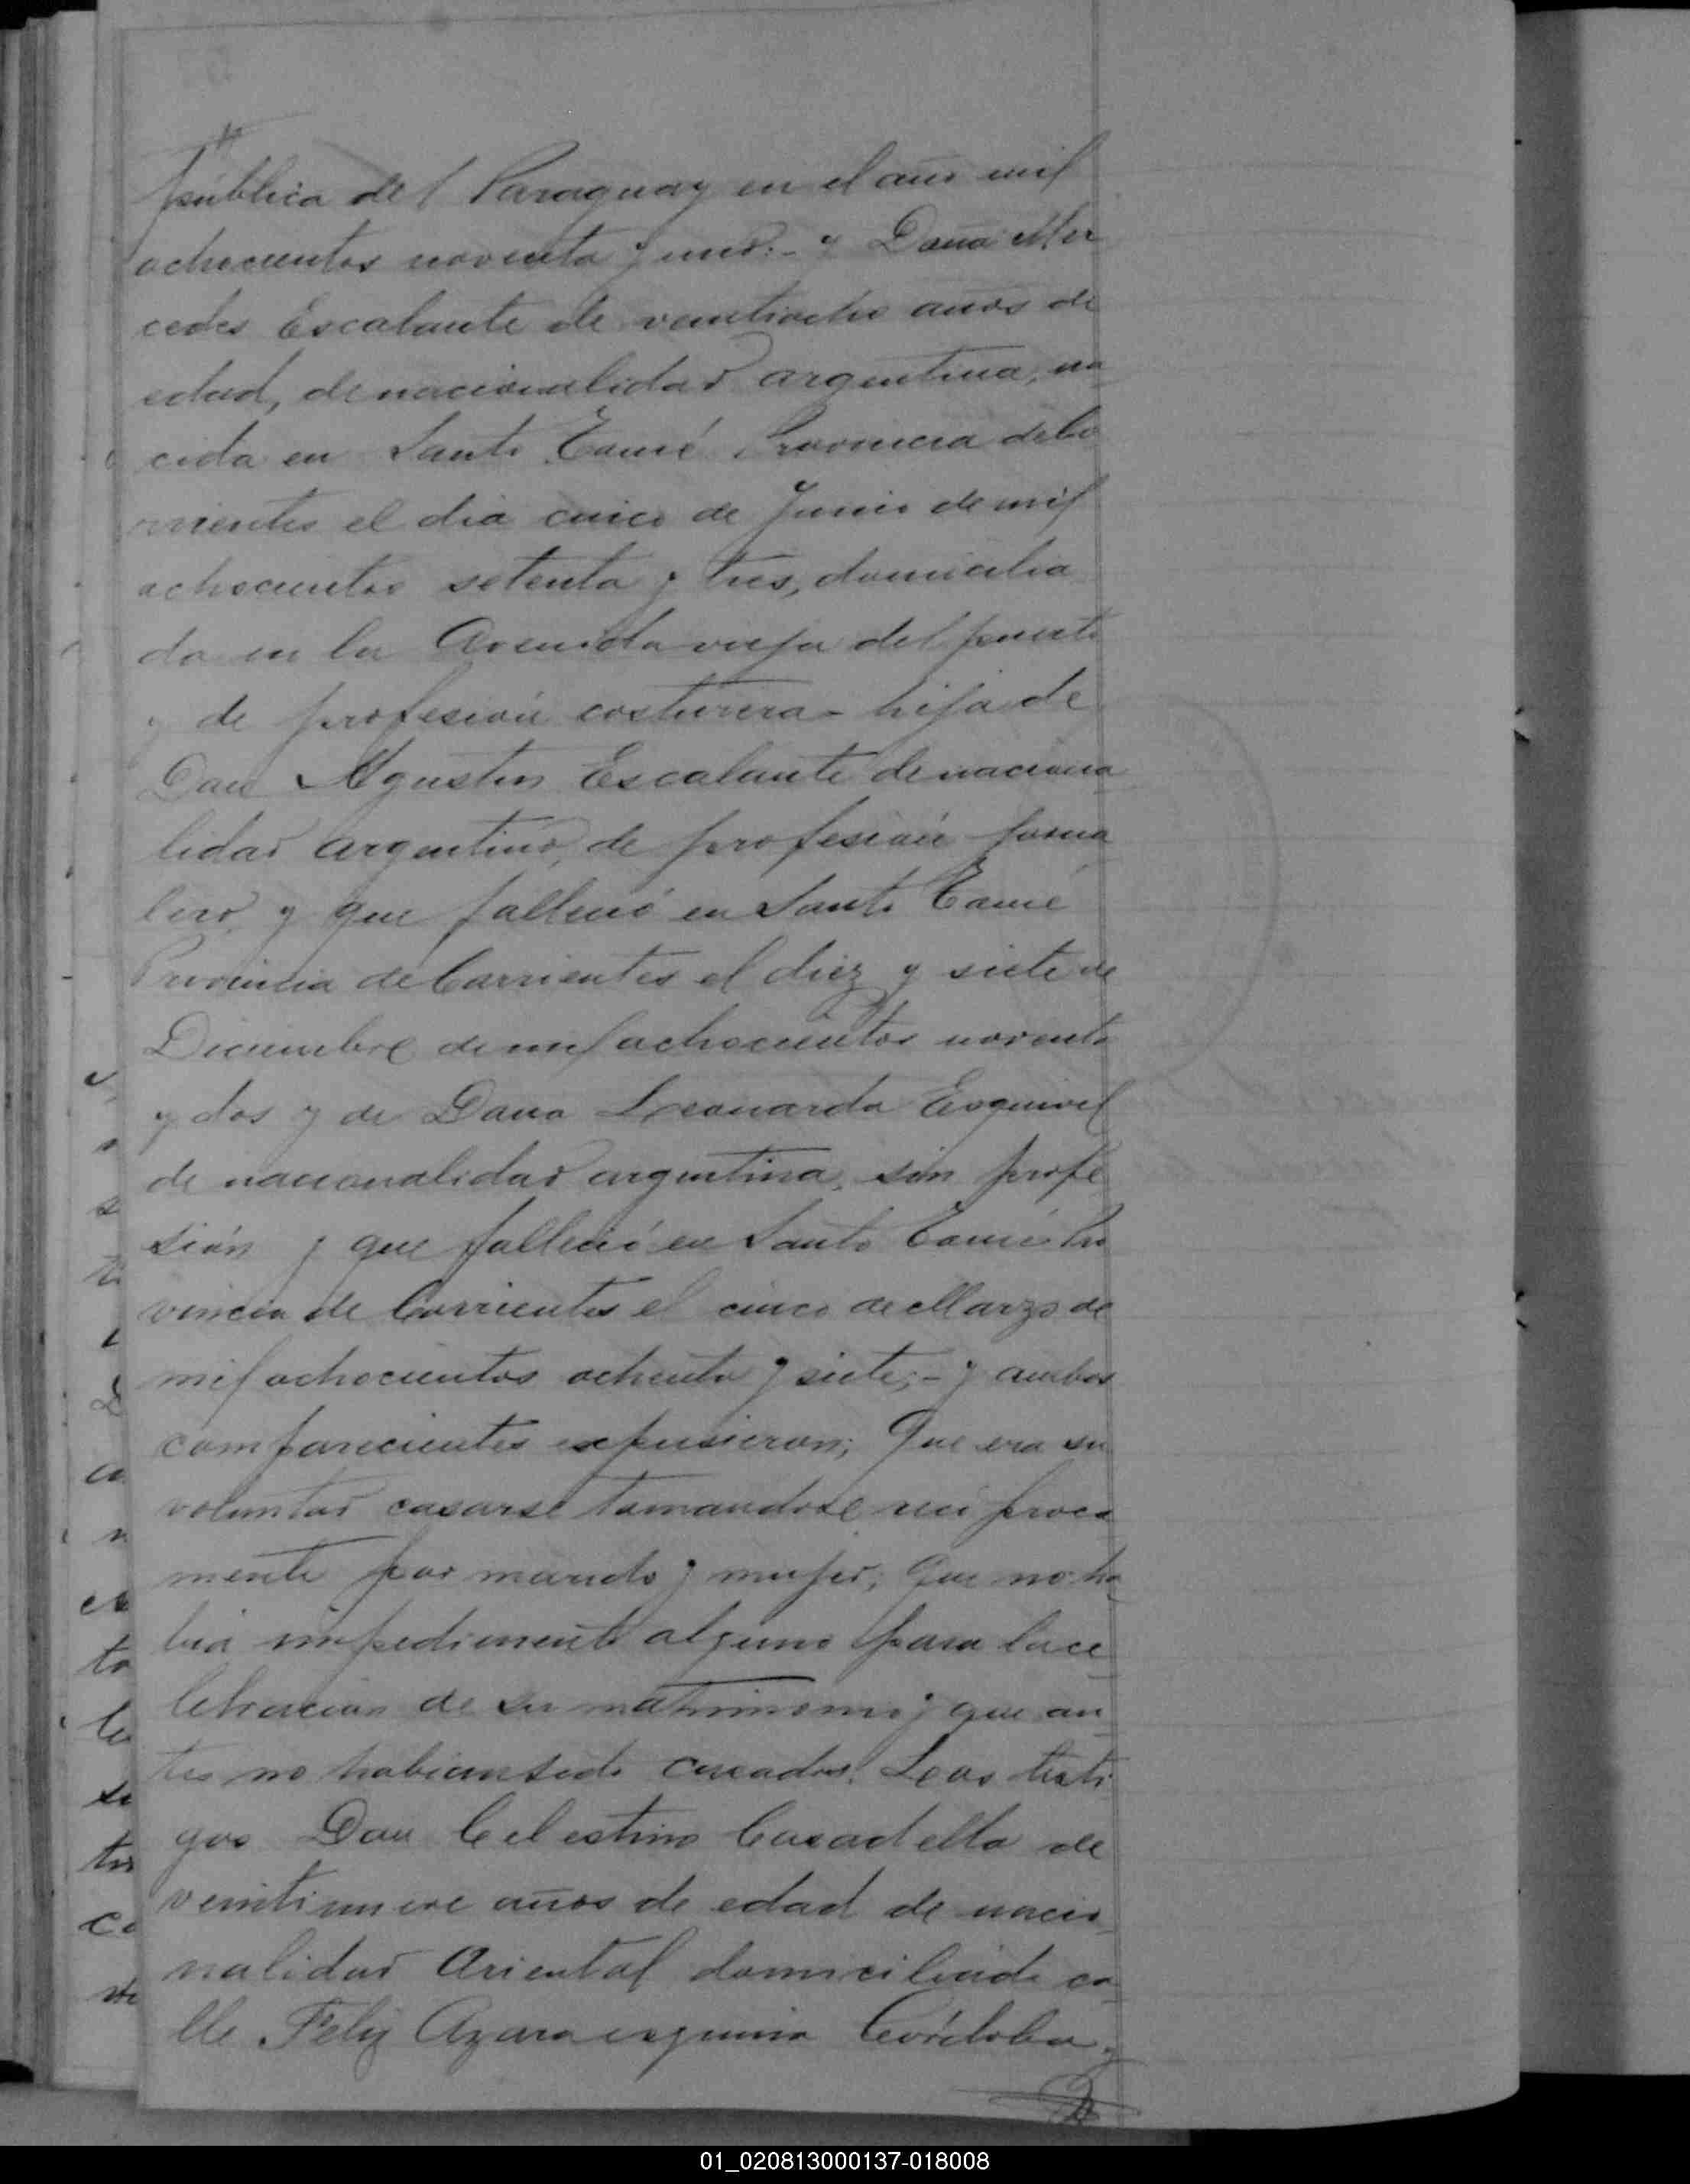 pública del Paraguay en el año mil
ochocientos noventa y uno:- y Doña Mer
cedes Escalante de veintiocho años de
edad, de nacionalidad argentina, na
cida en Santo Tomé Provincia de Co
rrientes el dia cinco de Junio de mil
ochocientos setenta y tres, domicilia
da en la Avenida vieja del puerto
y de profesión costurera - hija de
Don Agustin Escalante de naciona
lidad argentino, de profesión jorna
lero, y que falleció en Santo Tomé
Provincia de Corrientes el diez y siete de
Diciembre de mil ochocientos noventa
y dos y de Doña Leonarda Esquivel
de nacionalidad argentina, sin profe
sión y que falleció en Santo Tomé Pro
vincia de Corrientes el cinco de Marzo de
mil ochocientos ochenta y siete;- y ambos
comparecientes expusieron; Que era su
voluntad casarse tomandose reciproca
mente por marido y mujer; Que no ha
bia impedimento alguno para la ce
lebracion de su matrimonio; que an
tes no habian sido casados. Leos testi
gos Don Celestino Casadella de
veintinueve años de edad de nacio
nalidad Oriental domiciliado ca
lle Feliz Azara esquina Córdoba y
01_020813000137-018008